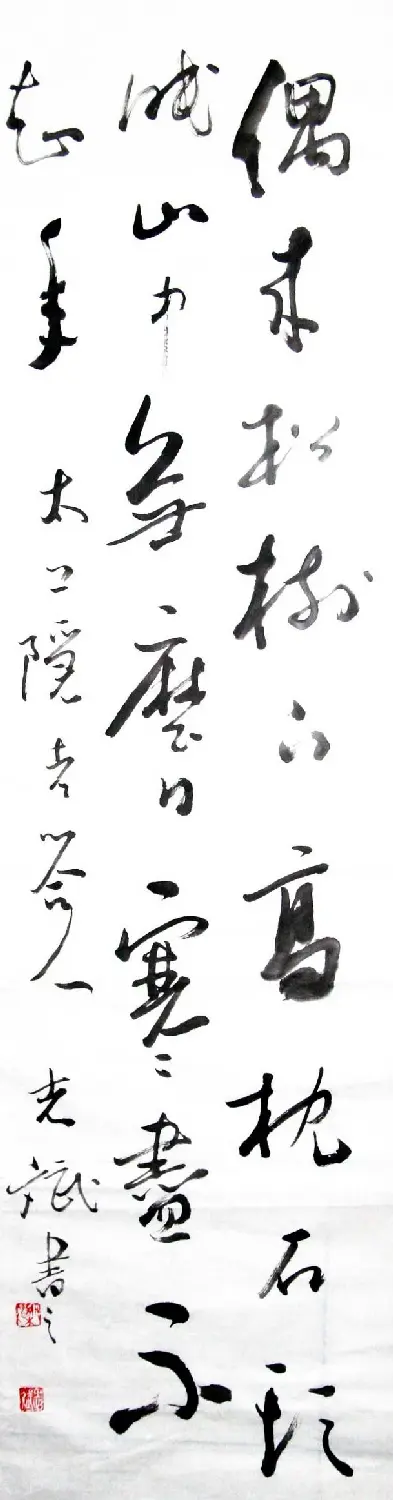 偶来松樹下高枕石頭
眠山中無曆日寒盡不
知年 太上隱者答人 光斌書之